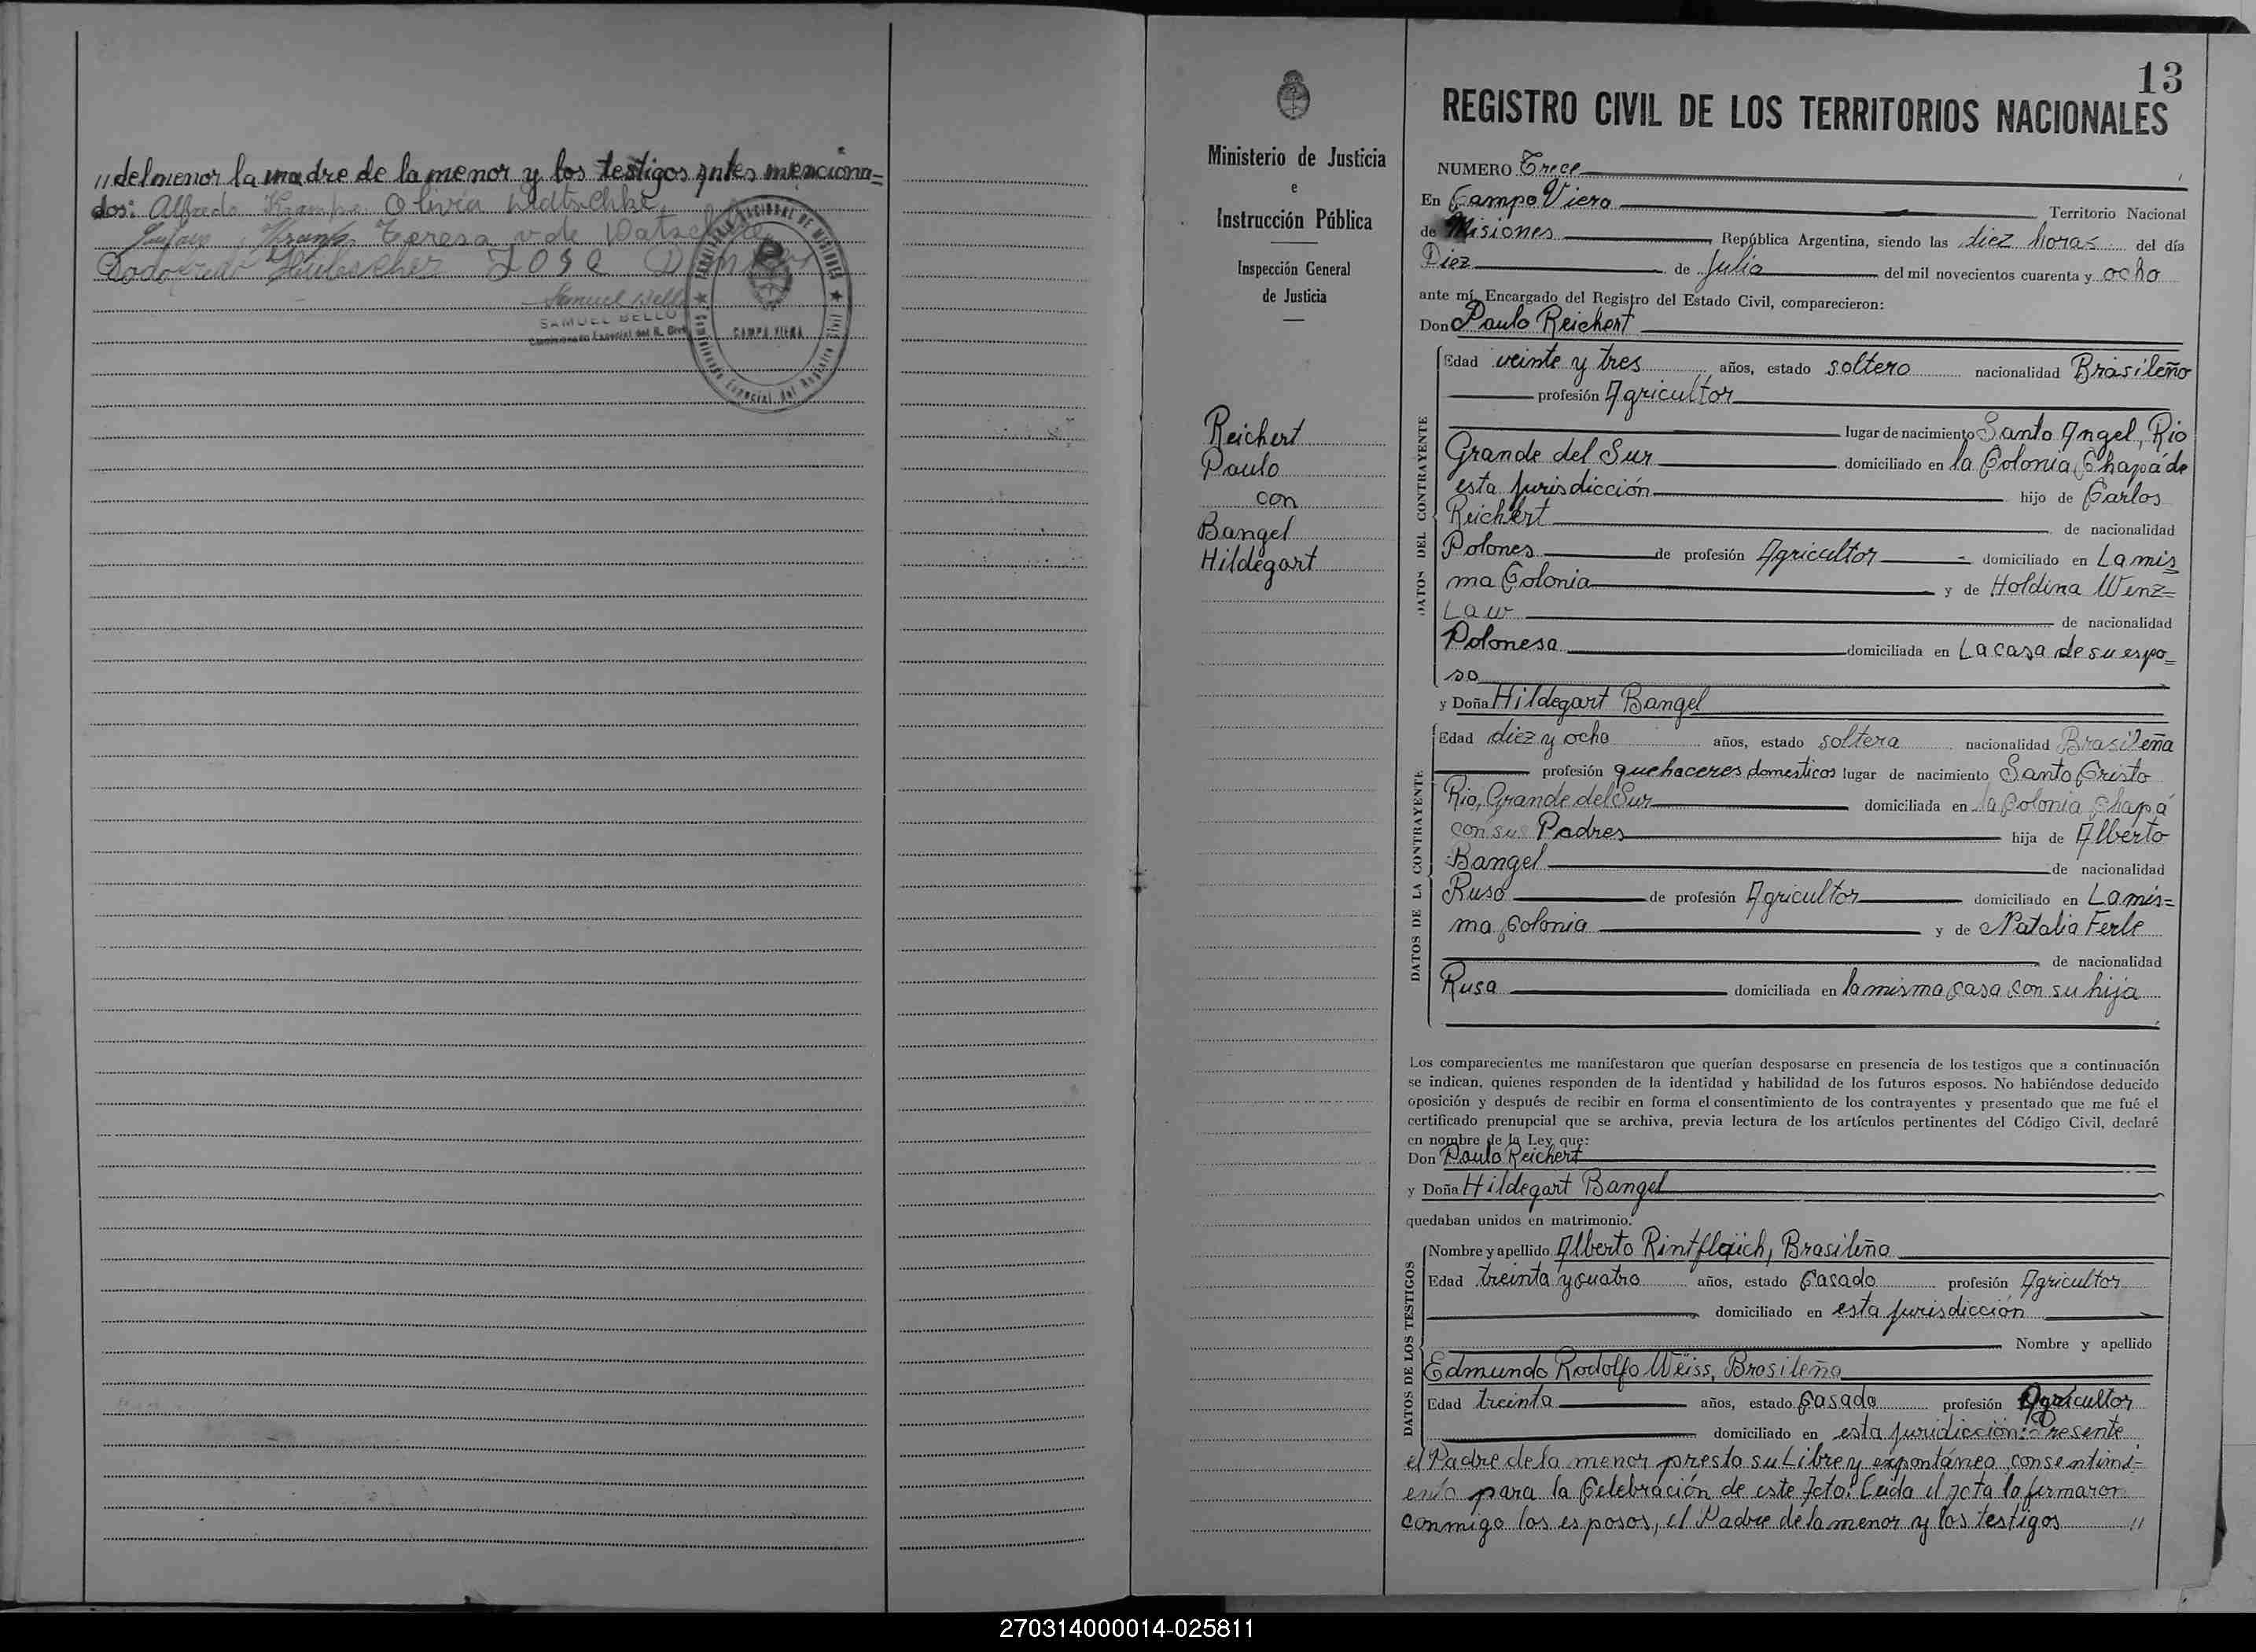 "del menor, la madre de la menor y los testigos antes menciona=
dos: Alfredo Krampe Olivia
Teresa v. de
JOSE
Samuel Bello
SAMUEL BELLO
CAMPO VIERA
Ministerio de Justicia
e
Instrucción Pública
Inspección General
de Justicia
Reichert
Paulo
con
Bangel
Hildegart
13
REGISTRO CIVIL DE LOS TERRITORIOS NACIONALES
NUMERO Trece
En Campo Viera Territorio Nacional
de Misiones República Argentina, siendo las diez horas del día
Diez de Julio del mil novecientos cuarenta y ocho
ante mí, Encargado del Registro del Estado Civil, comparecieron:
Don Paulo Reichert
DATOS DEL CONTRAYENTE
Edad veinte y tres años, estado soltero nacionalidad Brasileño
profesión Agricultor
lugar de nacimiento Santo Angel, Rio
Grande del Sur domiciliado en la Colonia Chapá de
esta jurisdicción hijo de Carlos
Reichert de nacionalidad
Polones de profesión Agricultor domiciliado en La mis
ma Colonia y de Holdina Wenz=
Law de nacionalidad
Polonesa domiciliada en La casa de su espo=
so
y Doña Hildegart Bangel
DATOS DE LA CONTRAYENTE
Edad diez y ocho años, estado soltera nacionalidad Brasileña
profesión quehaceres domesticos lugar de nacimiento Santo Cristo
Rio, Grande del Sur domiciliada en la Colonia Chapá
con sus Padres hija de Alberto
Bangel de nacionalidad
Ruso de profesión Agricultor domiciliado en La mis=
ma Colonia y de Natalia Ferle
de nacionalidad
Rusa domiciliada en la misma casa con su hija
Los comparecientes me manifestaron que querían desposarse en presencia de los testigos que a continuación
se indican, quienes responden de la identidad y habilidad de los futuros esposos. No habiéndose deducido
oposición y después de recibir en forma el consentimiento de los contrayentes y presentado que me fué el
certificado prenupcial que se archiva, previa lectura de los artículos pertinentes del Código Civil, declaré
en nombre de la Ley que:
Don Paulo Reichert
y Doña Hildegart Bangel
quedaban unidos en matrimonio.
DATOS DE LOS TESTIGOS
Nombre y apellido Alberto Rintflaich, Brasileño
Edad treinta y cuatro años, estado Casado profesión Agricultor
domiciliado en esta jurisdicción
Nombre y apellido
Edmundo Rodolfo Weiss, Brasileño
Edad treinta años, estado Casado profesión Agricultor
domiciliado en esta juridicción: Presente
el Padre de la menor presta su Libre y expontáneo consentimi-
ento para la Celebración de este Acto. Leida el Acta la firmaron
conmigo los esposos, el Padre de la menor y los testigos "
270314000014-025811